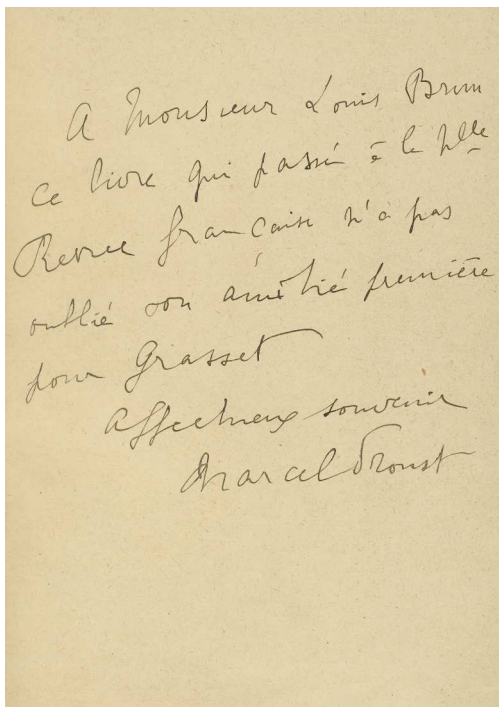 A Monsieur Louis Brun
ce livre qui passé à la nlle
Revue française n'a pas
oublié son amitié première
pour Grasset
Affectueux souvenir
Marcel Proust